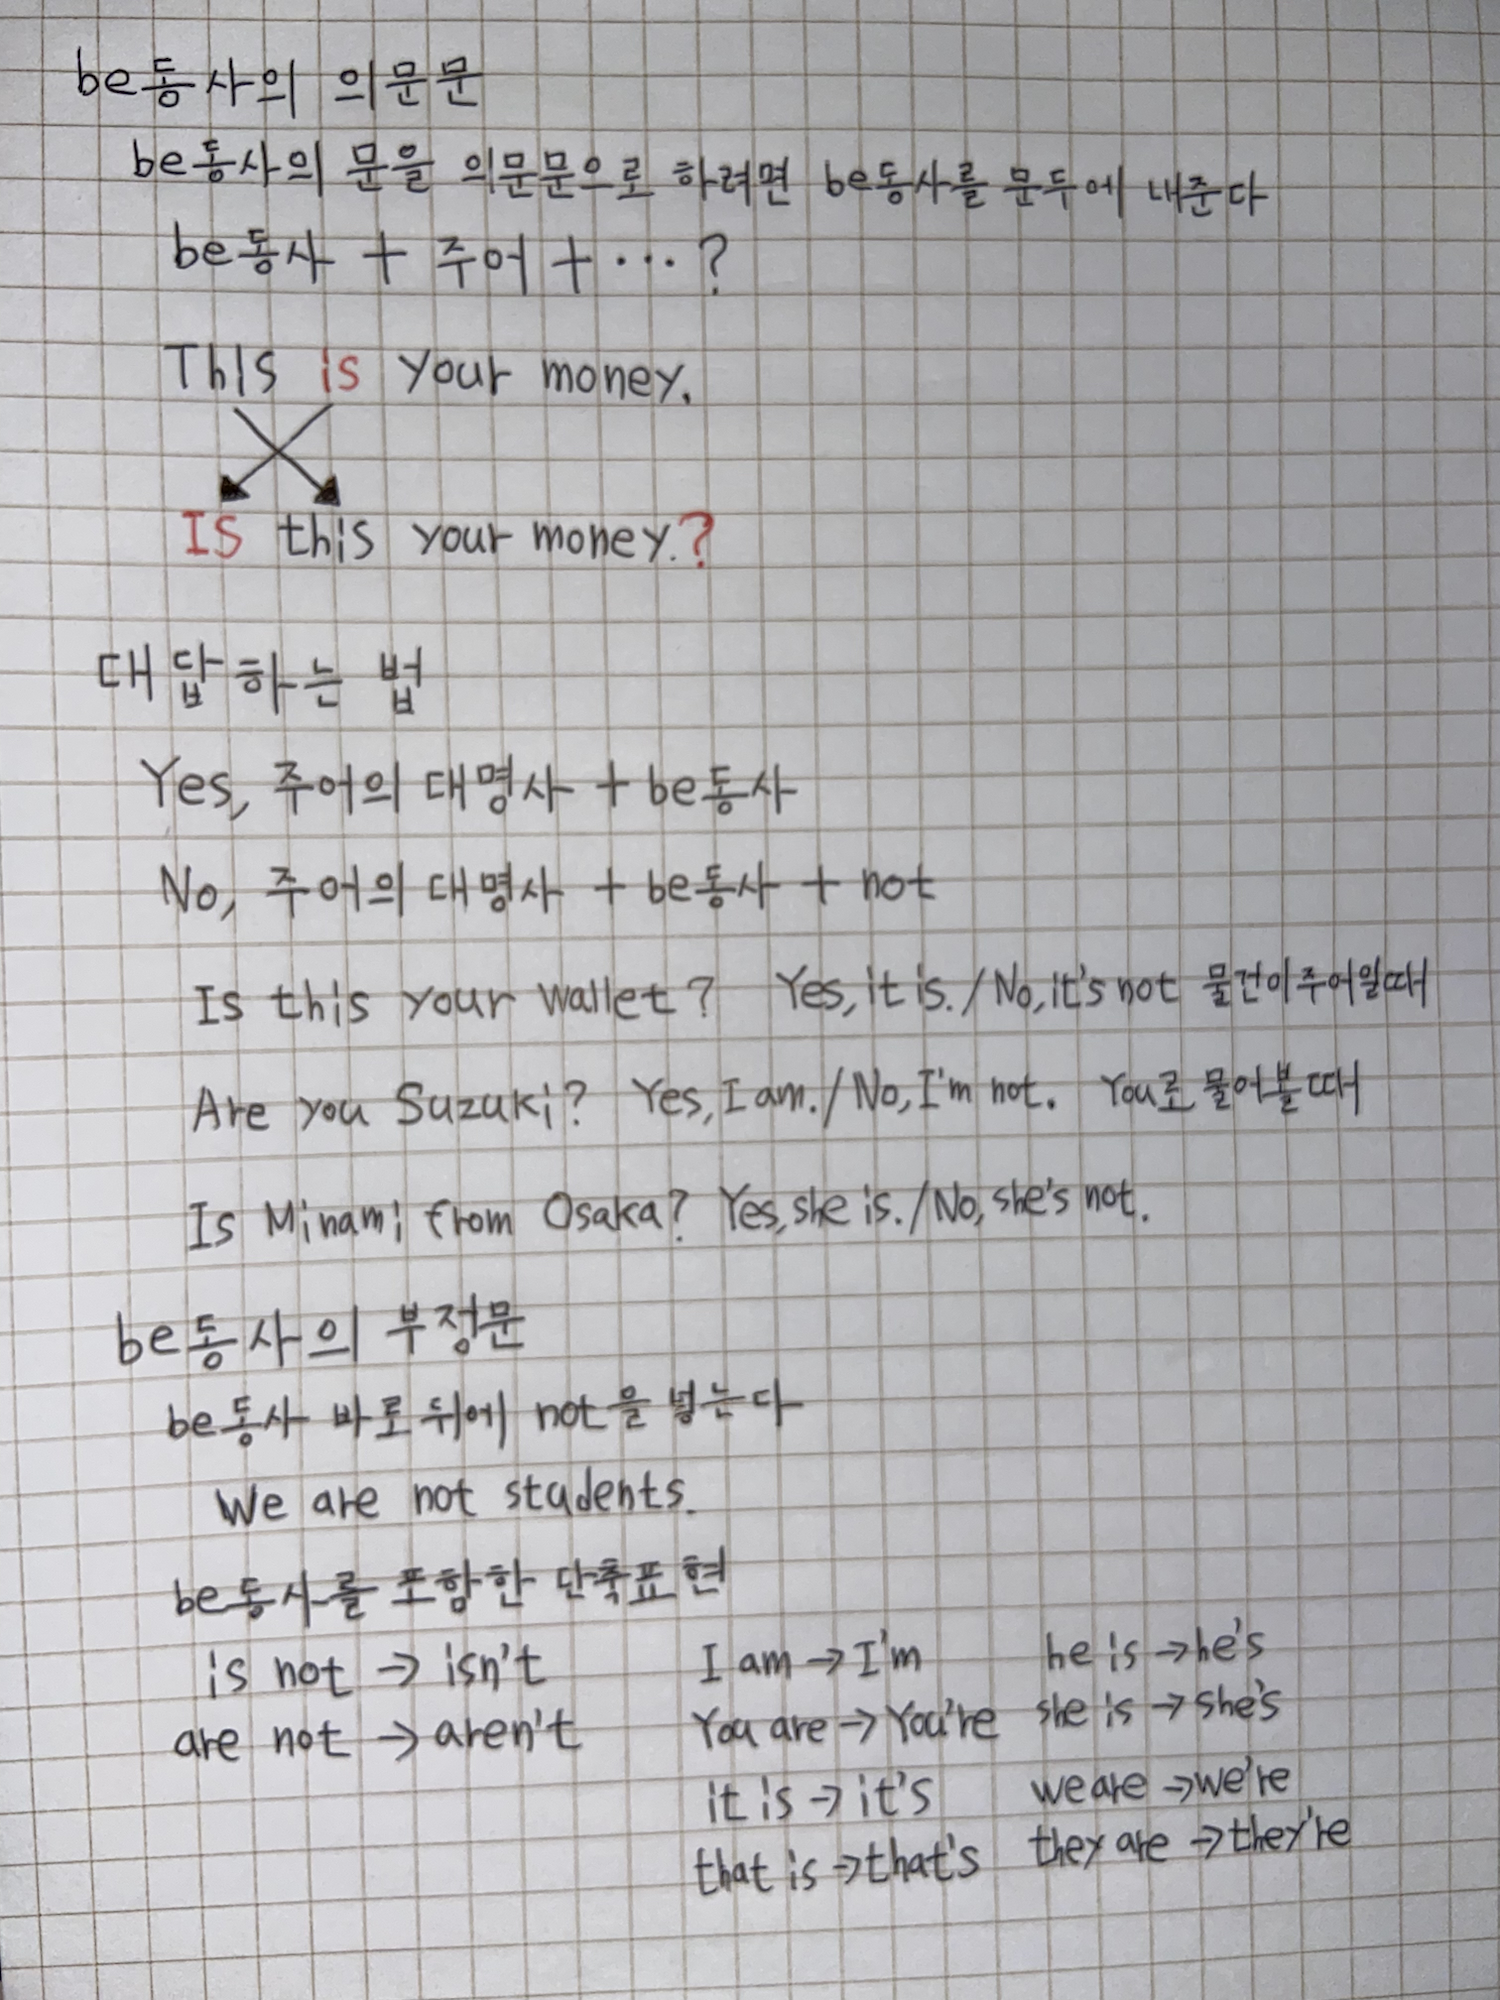 be동사의 의문문
be동사의 문을 의문문으로 하려면 be동사를 문두에 내준다
be동사 + 주어 + ... ?
This is your money.
Is this your money.?
대답하는 법
Yes, 주어의 대명사 + be동사
No, 주어의 대명사 + be동사 + not
Is this your wallet? Yes, it is. / No, it's not 물건이 주어일때
Are you Suzuki? Yes, I am. / No, I'm not. You로 물어볼때
Is Minami from Osaka? Yes, she is. / No, she's not.
be동사의 부정문
be동사 바로 뒤에 not을 넣는다
We are not students.
be동사를 포함한 단축표현
is not → isn't I am → I'm he is → he's
are not → aren't You are → You're she is → she's
it is → it's we are → we're
that is → that's they are → they're